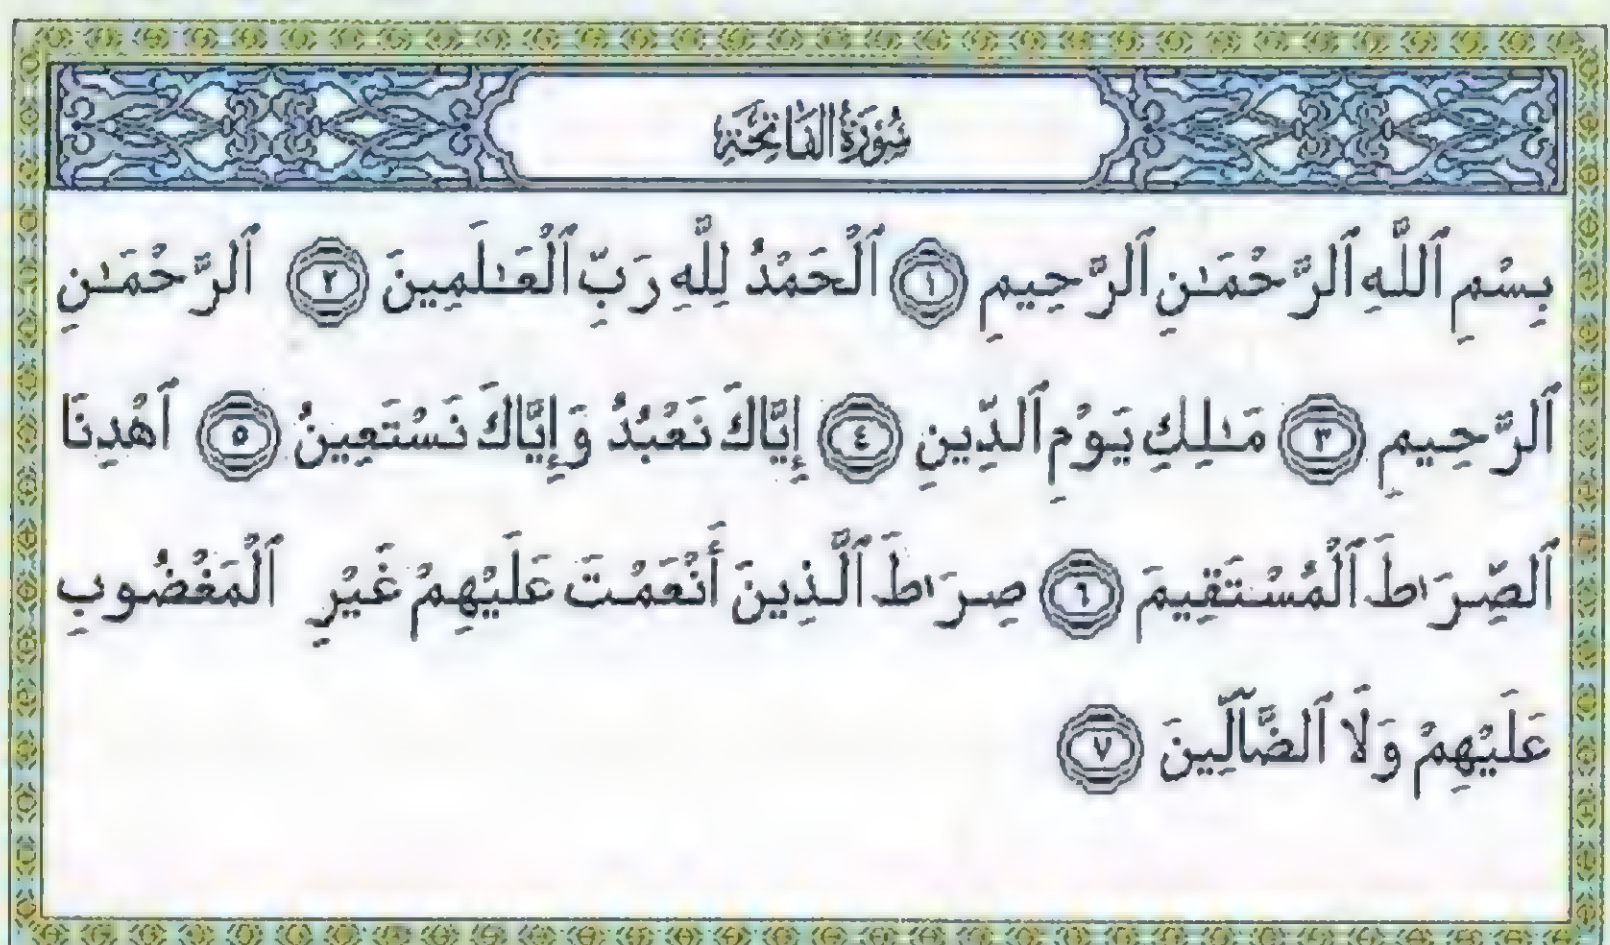 سُورَةُ الْفَاتِحَةِ
بِسْمِ ٱللَّهِ ٱلرَّحْمَـٰنِ ٱلرَّحِيمِ ١ ٱلْحَمْدُ لِلَّهِ رَبِّ ٱلْعَـٰلَمِينَ ٢ ٱلرَّحْمَـٰنِ
ٱلرَّحِيمِ ٣ مَـٰلِكِ يَوْمِ ٱلدِّينِ ٤ إِيَّاكَ نَعْبُدُ وَإِيَّاكَ نَسْتَعِينُ ٥ ٱهْدِنَا
ٱلصِّرَٰطَ ٱلْمُسْتَقِيمَ ٦ صِرَٰطَ ٱلَّذِينَ أَنْعَمْتَ عَلَيْهِمْ غَيْرِ ٱلْمَغْضُوبِ
عَلَيْهِمْ وَلَا ٱلضَّآلِّينَ ٧